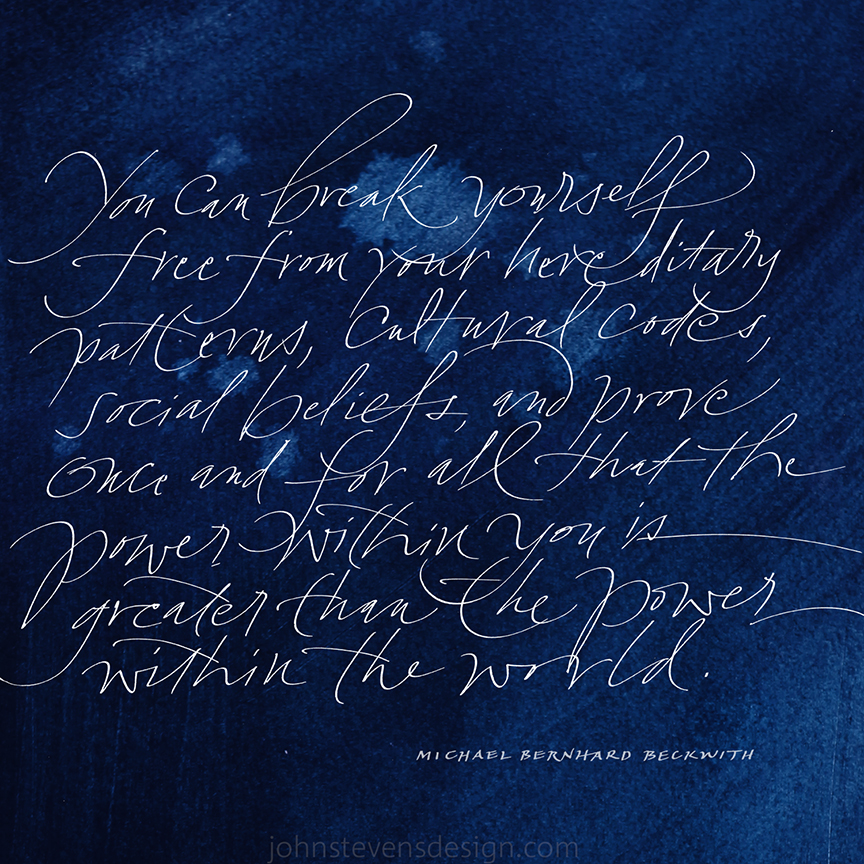 You can break yourself
free from your hereditary
patterns, cultural codes,
social beliefs, and prove
once and for all that the
power within you is
greater than the power
within the world.
MICHAEL BERNHARD BECKWITH
johnstevensdesign.com